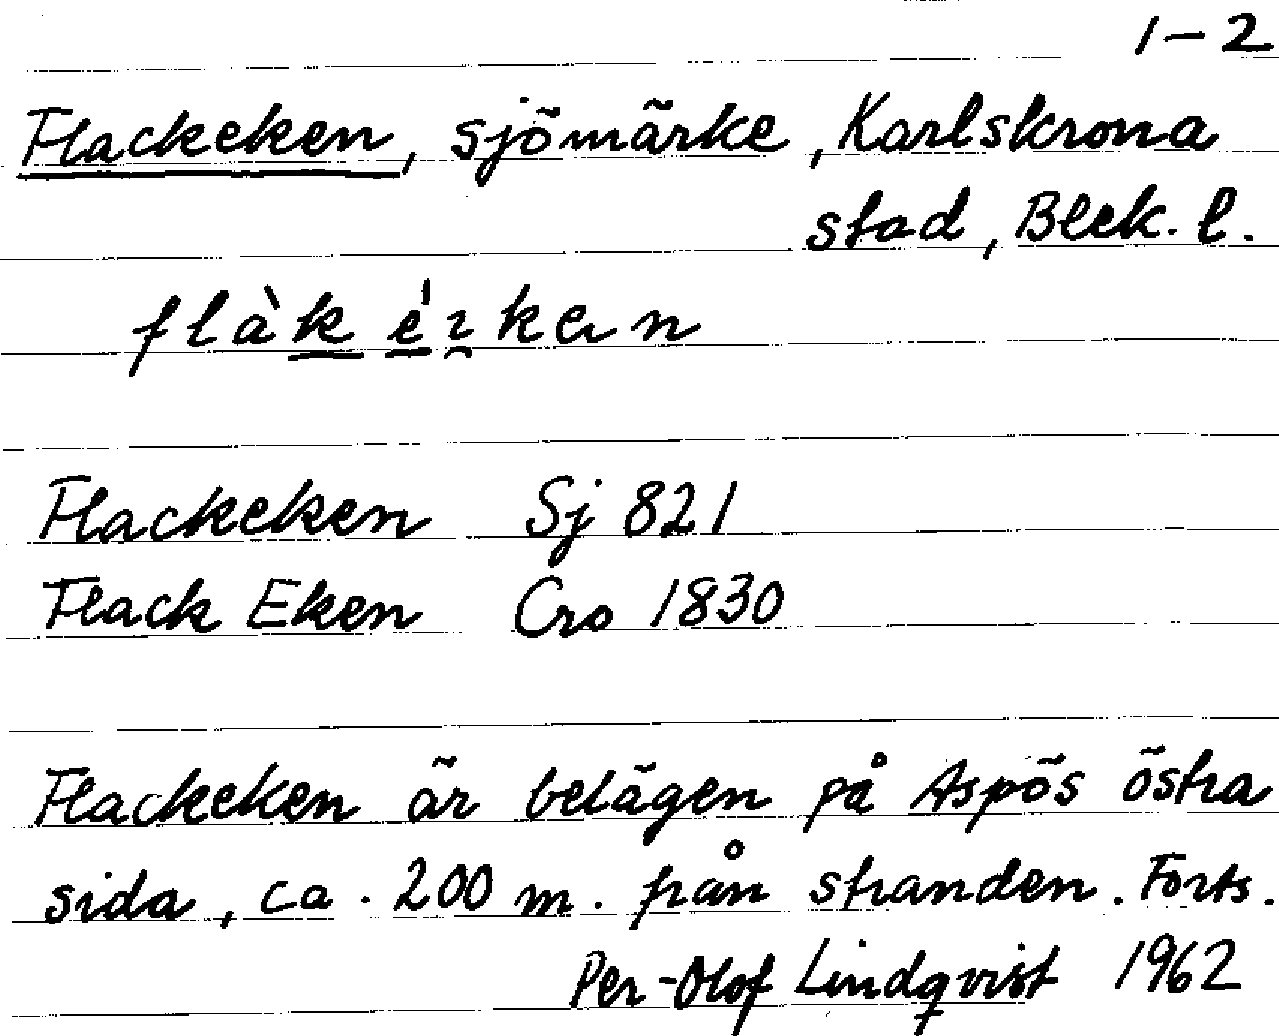 1-2
Flackeken, sjömärke, Karlskrona
stad, Blek. l.
Flackeken Sj 821
Flack Eken Cro 1830
Flackeken är belägen på Aspös östra
sida, ca. 200 m. från stranden. Forts.
Per-Olof Lindqvist 1962